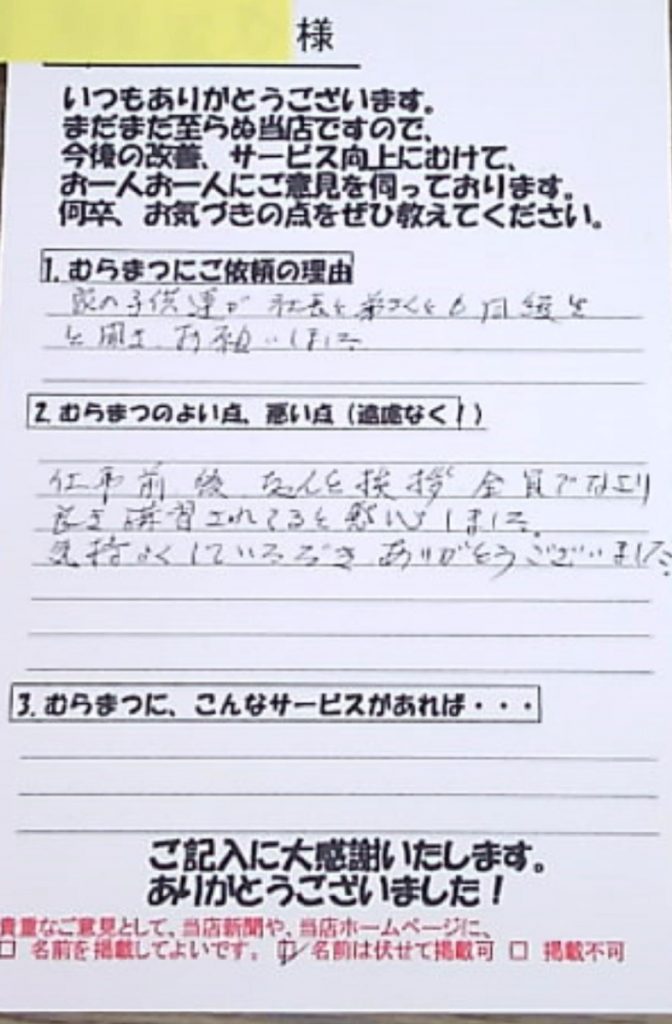 様
いつもありがとうございます。
まだまだ至らぬ当店ですので、
今後の改善、サービス向上にむけて、
お一人お一人にご意見を伺っております。
何卒、お気づきの点をぜひ教えてください。
1. むらまつにご依頼の理由
家の子供達が 社長と弟さんとも同級生
と聞き お願いしました
2. むらまつのよい点、悪い点（遠慮なく！）
仕事前後 きちんと挨拶 全員で
良き 講習されてると感心しました。
気持よくしていただき ありがとうございました。
3. むらまつに、こんなサービスがあれば・・・
ご記入に大感謝いたします。
ありがとうございました！
貴重なご意見として、当店新聞や、当店ホームページに、
□ 名前を掲載してよいです。 ☑ 名前は伏せて掲載可 □ 掲載不可